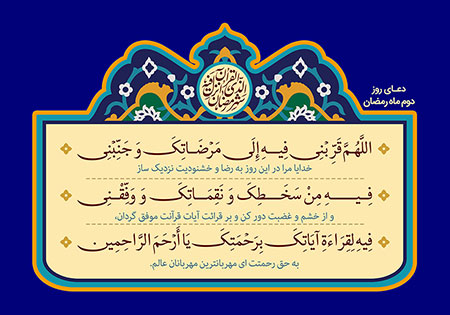 شهر رمضان الذی انزل فیه القرآن
دعـای روز
دوم ماه رمضان
اللَّهُمَّ قَرِّبْنِی فِیهِ إِلَى مَرْضَاتِكَ وَ جَنِّبْنِی
خدایا مرا در این روز به رضا و خشنودیت نزدیک ساز
فِیهِ مِنْ سَخَطِكَ وَ نَقِمَاتِكَ وَ وَفِّقْنِی
و از خشم و غضبت دور کن و بر قرائت آیات قرآنت موفق گردان،
فِیهِ لِقِرَاءَةِ آیَاتِكَ بِرَحْمَتِكَ یَا أَرْحَمَ الرَّاحِمِینَ
به حق رحمتت ای مهربانترین مهربانان عالم.